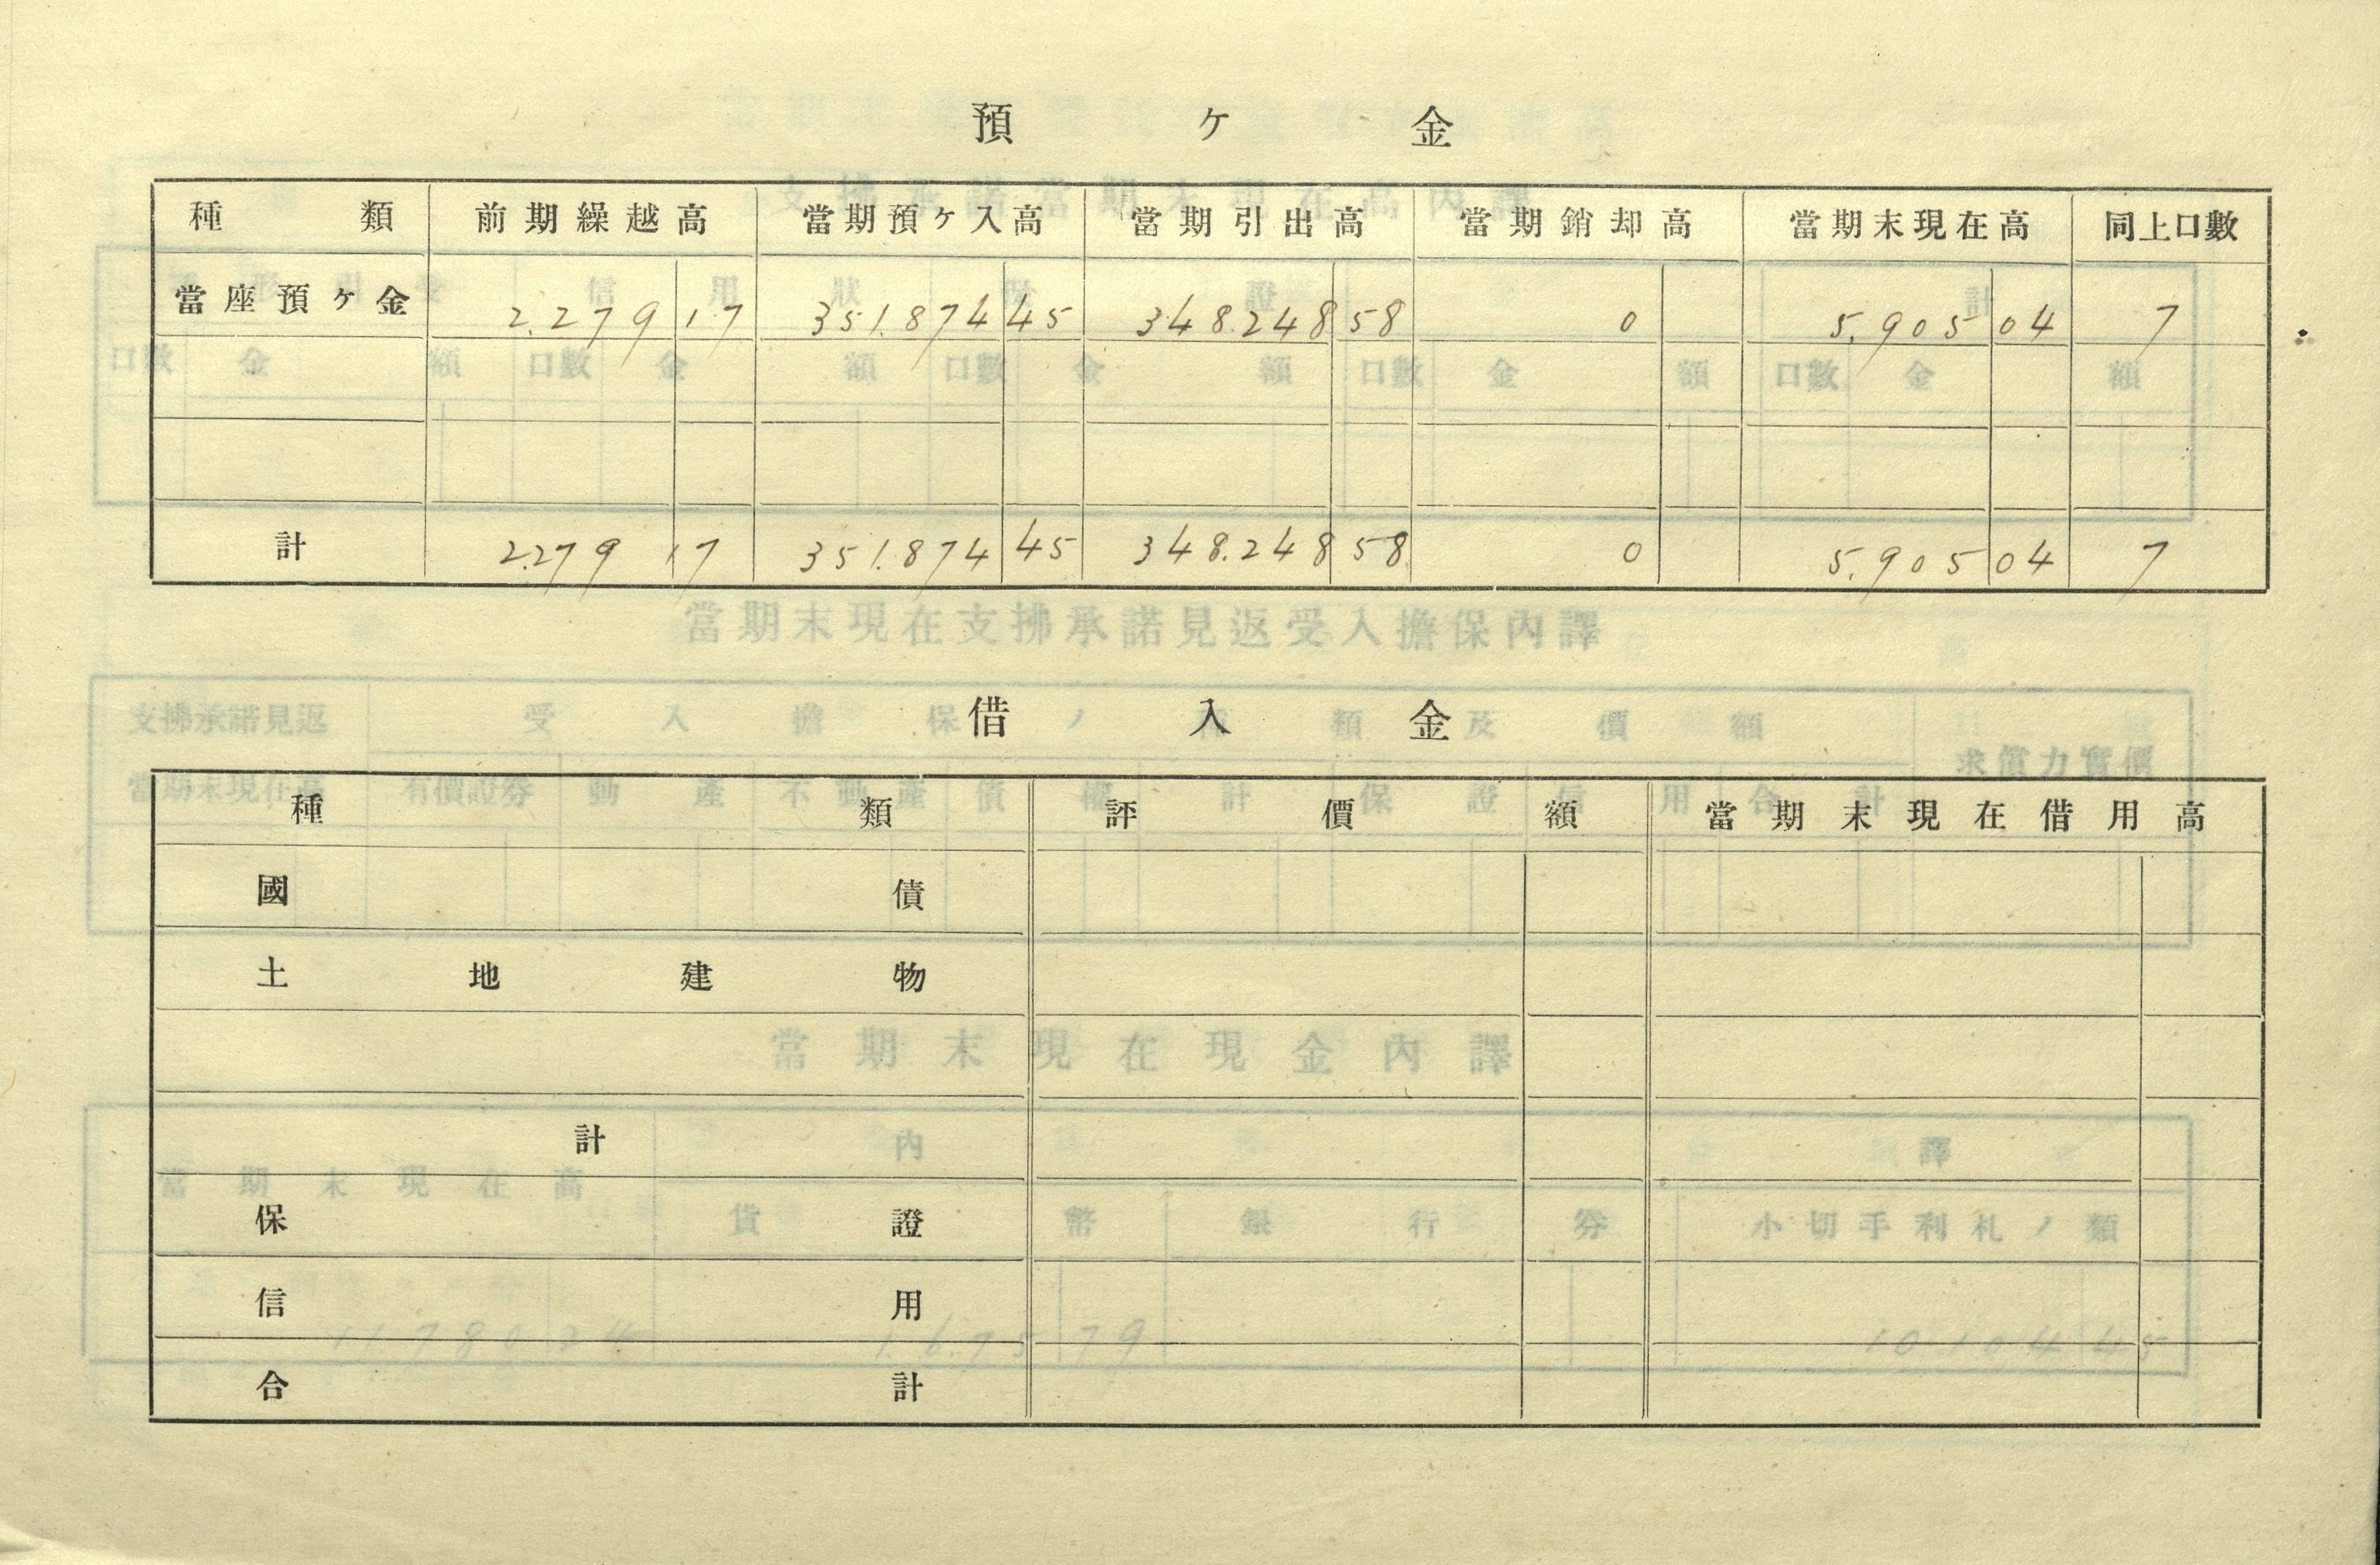 預ケ金
種類 前期繰越高 當期預ケ入高 當期引出高 當期銷却高 當期末現在高 同上口數
當座預ケ金 2.279 17 351.874 45 348.248 58 0 5.905 04 7
計 2.279 17 351.874 45 348.248 58 0 5.905 04 7
借入金
種類 評價額 當期末現在借用高
國債
土地建物
計
保證
信用
合計